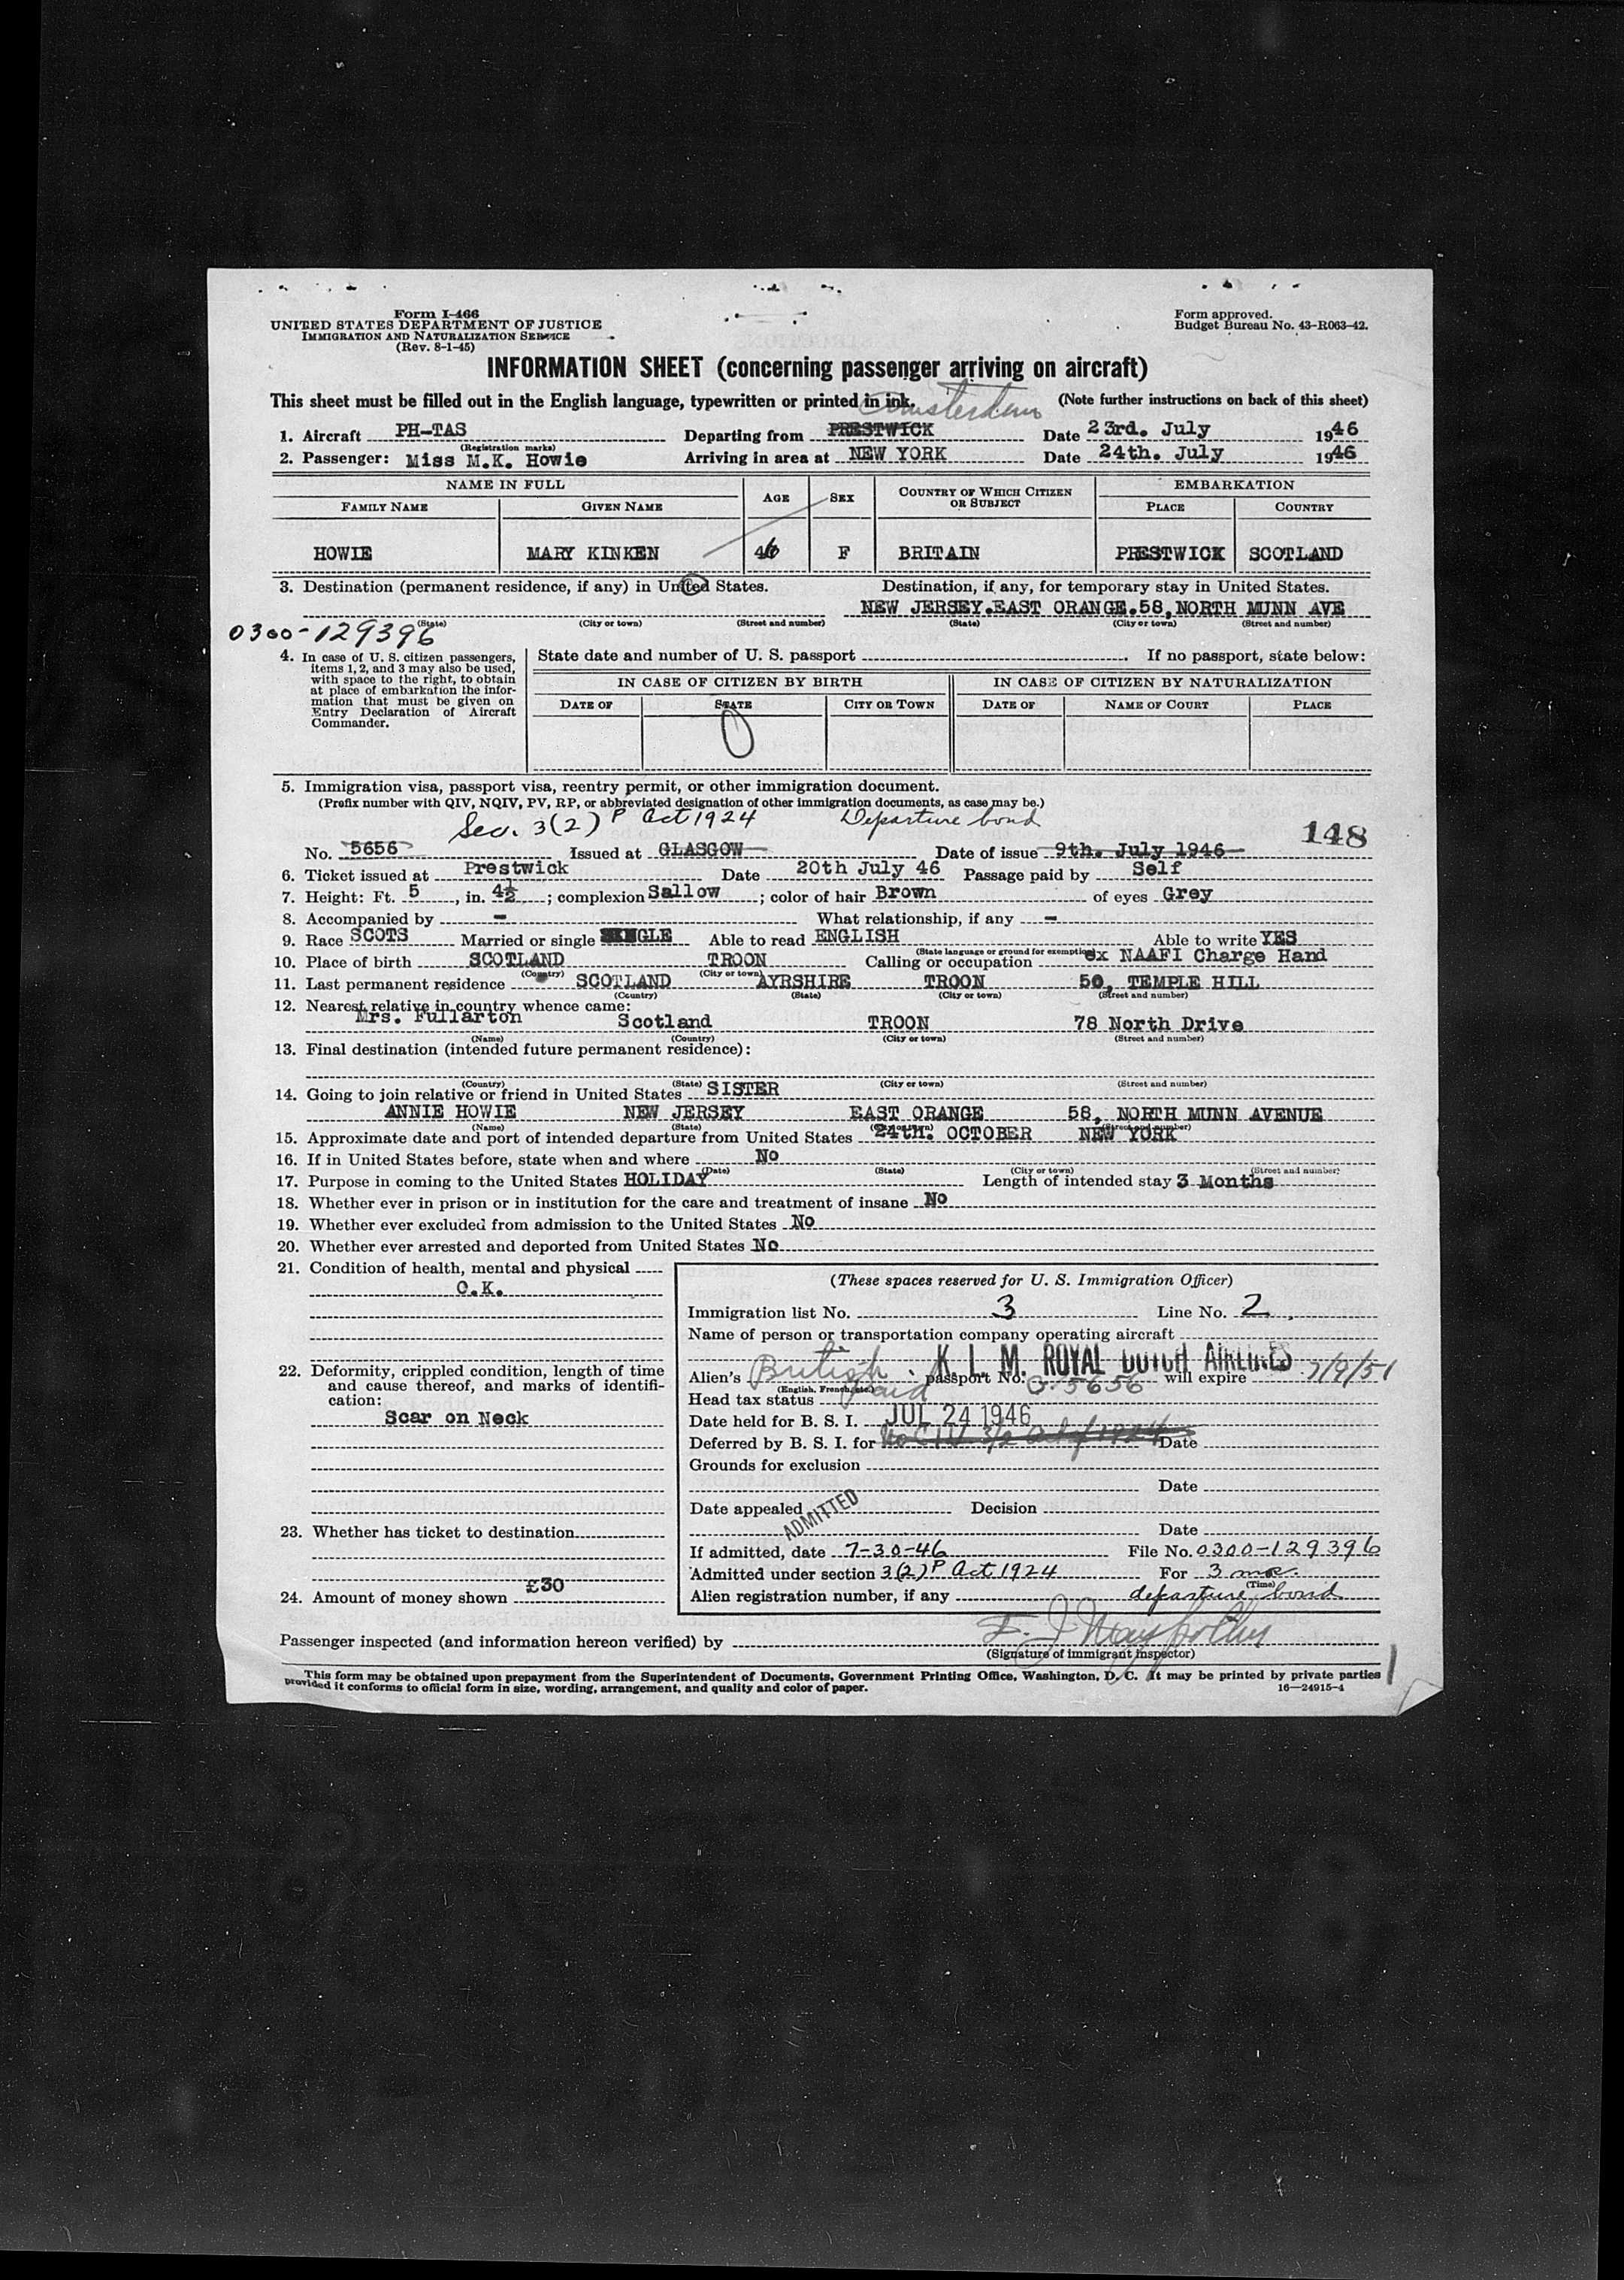 Form I-466
UNITED STATES DEPARTMENT OF JUSTICE
IMMIGRATION AND NATURALIZATION SERVICE
(Rev. 8-1-45)
Form approved.
Budget Bureau No. 43-R063-42.
INFORMATION SHEET (concerning passenger arriving on aircraft)
This sheet must be filled out in the English language, typewritten or printed in ink. (Note further instructions on back of this sheet)
Amsterdam
1. Aircraft PH-TAS Departing from PRESTWICK Date 23rd. July 1946
(Registration marks)
2. Passenger: Miss M.K. Howie Arriving in area at NEW YORK Date 24th. July 1946
NAME IN FULL AGE SEX COUNTRY OF WHICH CITIZEN OR SUBJECT EMBARKATION
FAMILY NAME GIVEN NAME PLACE COUNTRY
HOWIE MARY KINKEN 46 F BRITAIN PRESTWICK SCOTLAND
3. Destination (permanent residence, if any) in United States. Destination, if any, for temporary stay in United States.
NEW JERSEY.EAST ORANGE.58,NORTH MUNN AVE
(State) (City or town) (Street and number) (State) (City or town) (Street and number)
0300-129396
4. In case of U. S. citizen passengers, items 1, 2, and 3 may also be used, with space to the right, to obtain at place of embarkation the information that must be given on Entry Declaration of Aircraft Commander.
State date and number of U. S. passport . If no passport, state below:
IN CASE OF CITIZEN BY BIRTH IN CASE OF CITIZEN BY NATURALIZATION
DATE OF STATE CITY OR TOWN DATE OF NAME OF COURT PLACE
0
5. Immigration visa, passport visa, reentry permit, or other immigration document.
(Prefix number with QIV, NQIV, PV, RP, or abbreviated designation of other immigration documents, as case may be.)
Sec. 3(2) P Act 1924 Departure bond 148
No. 5656 Issued at GLASGOW Date of issue 9th. July 1946
6. Ticket issued at Prestwick Date 20th July 46 Passage paid by Self
7. Height: Ft. 5, in. 4½; complexion Sallow; color of hair Brown of eyes Grey
8. Accompanied by - What relationship, if any -
9. Race SCOTS Married or single SINGLE Able to read ENGLISH Able to write YES
(State language or ground for exemption)
10. Place of birth SCOTLAND TROON Calling or occupation ex NAAFI Charge Hand
(Country) (City or town)
11. Last permanent residence SCOTLAND AYRSHIRE TROON 50, TEMPLE HILL
(Country) (State) (City or town) (Street and number)
12. Nearest relative in country whence came:
Mrs. Fullarton Scotland TROON 78 North Drive
(Name) (Country) (City or town) (Street and number)
13. Final destination (intended future permanent residence):
(Country) (State) (City or town) (Street and number)
14. Going to join relative or friend in United States SISTER
ANNIE HOWIE NEW JERSEY EAST ORANGE 58, NORTH MUNN AVENUE
(Name) (State) (City or town) (Street and number)
15. Approximate date and port of intended departure from United States 24th. OCTOBER NEW YORK
16. If in United States before, state when and where No
(Date) (State) (City or town) (Street and number)
17. Purpose in coming to the United States HOLIDAY Length of intended stay 3 Months
18. Whether ever in prison or in institution for the care and treatment of insane No
19. Whether ever excluded from admission to the United States No
20. Whether ever arrested and deported from United States No
21. Condition of health, mental and physical
O.K.
22. Deformity, crippled condition, length of time and cause thereof, and marks of identification:
Scar on Neck
23. Whether has ticket to destination
24. Amount of money shown £30
(These spaces reserved for U. S. Immigration Officer)
Immigration list No. 3 Line No. 2
Name of person or transportation company operating aircraft
K. L. M. ROYAL DUTCH AIRLINES
Alien's British passport No. G-5656 will expire 7/9/51
(English, French, etc.)
Head tax status Paid
Date held for B. S. I. JUL 24 1946
Deferred by B. S. I. for No CIV 3/2 Act of 1924 Date
Grounds for exclusion
Date
Date appealed Decision
ADMITTED
Date
If admitted, date 7-30-46 File No. 0300-129396
Admitted under section 3(2) P Act 1924 For 3 mos.
(Time)
Alien registration number, if any departure bond
Passenger inspected (and information hereon verified) by
(Signature of immigrant inspector)
This form may be obtained upon prepayment from the Superintendent of Documents, Government Printing Office, Washington, D. C. It may be printed by private parties
provided it conforms to official form in size, wording, arrangement, and quality and color of paper.
16—24915-4